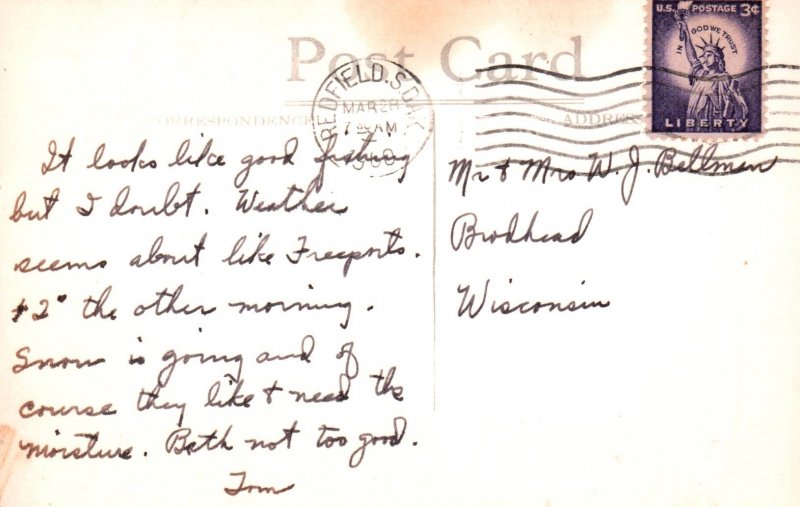 Post Card
U.S. POSTAGE 3¢
IN GOD WE TRUST
LIBERTY
REDFIELD, S.DAK.
MAR 28
7 AM
CORRESPONDENCE
ADDRESS
It looks like good fishing
but I doubt. Weather
seems about like Freeports.
+2° the other morning.
Snow is going and of
course they like & need the
moisture. Beth not too good.
Tom
Mr & Mrs W. J. Bellman
Brodhead
Wisconsin